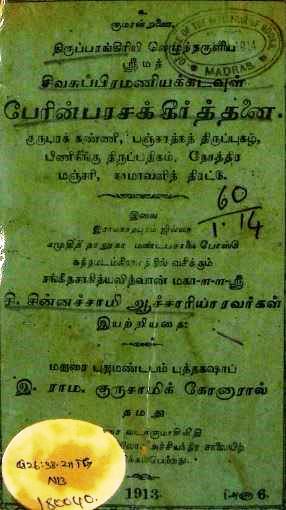 உ
குமரன்றுணை.
திருப்பரங்கிரிலி லெழுந்தருளிய
ஸ்ரீ மத்
சிவசுப்பிரமணியக்கடவுள்
பேரின்பரசக்கீர்த்தனை.
குருபரக் கண்ணி, பஞ்சரத்நத் திருப்புகழ்,
பிணிநீங்கு திருப்பதிகம், தோத்திர
மஞ்சரி, காமாவளித் திரட்டு.
MADRAS
60
1. 14
இவை
இராமநாதபுரம் ஜில்லா
கமுதித் தாலூகா மண்டபசாலை போஸ்டு
வசிக்கும்
சங்கீதசாகித்யவித்வான் மகா-ஈ-ஈ-ஸ்ரீ
சி. சின்னச்சாமி ஆச்சாரியாரவர்கள்
இயற்றியதை
மதுரை புதுமண்டபம் புத்தகஷாப்
இ. ராம. குருசாமிக் கோனாரால்
தமது
அச்சியந்திர சாலையில்
180040.
1913
6.